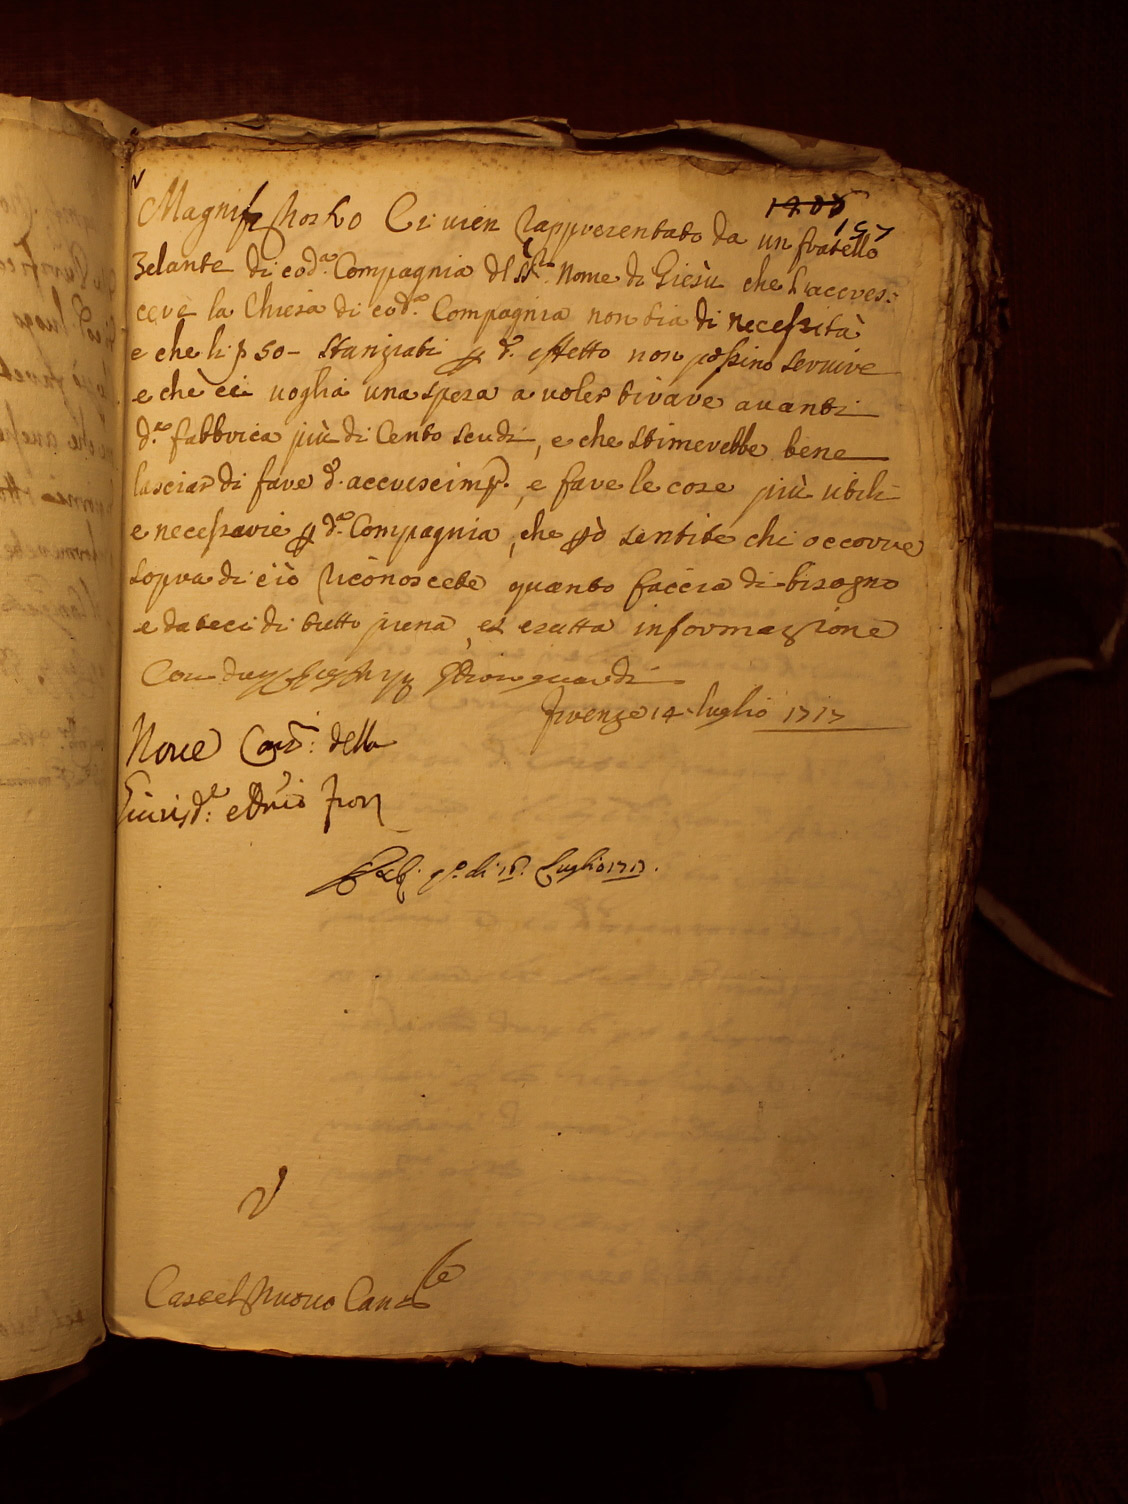 157
Magnif: Nostro Ci vien rappresentato da un fratello
Zelante di cod.a Compagnia del SS.mo Nome di Giesù che l'accres:
cere la Chiesa di cod.a Compagnia non sia di necessità
e che li p 50 – stanziati p d.o effetto non possino servire
e che ci voglia una spesa a voler tirare avanti
d.a fabbrica più di Cento scudi, e che stimerebbe bene
lasciar di fare d.o accrescim.to, e fare le cose più utili
e necessarie p d.a Compagnia, che però sentite chi occorre
sopra di ciò riconoscete quanto faccia di bisogno
e dateci di tutto piena, ed esatta informazione
guardi
Firenze 14 luglio 1717
Nove Cons: della
Giurisd.e e Dnio Fior
di 18 Luglio 1717.
Castel Nuovo Canc.le